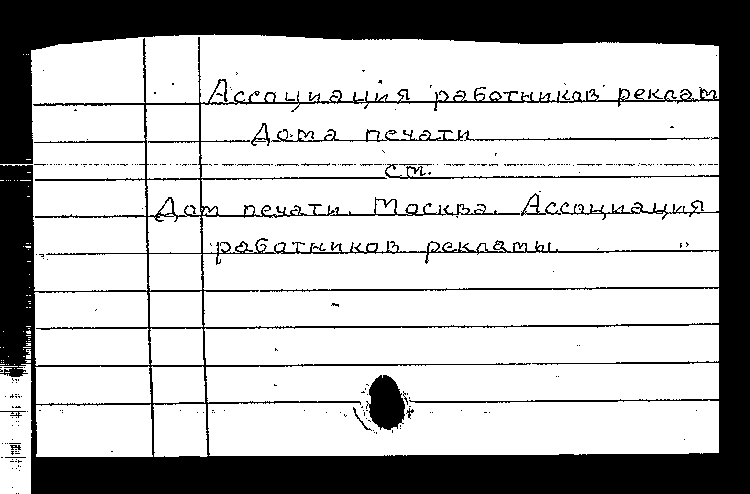 Ассоциация работников реклам
Дома печати
см.
Дом печати. Москва. Ассоциация
работников рекламы.